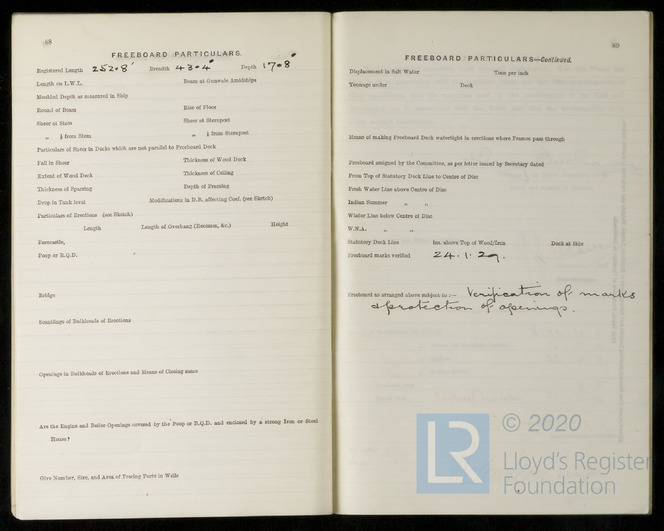 68
FREEBOARD PARTICULARS.
Registered Length 252·8' Breadth 43·4' Depth 17·8'
Length on L.W.L. Beam at Gunwale Amidships
Moulded Depth as measured in Ship
Round of Beam Rise of Floor
Sheer at Stem Sheer at Sternpost
„ ⅛ from Stem „ ⅛ from Sternpost
Particulars of Sheer in Decks which are not parallel to Freeboard Deck
Fall in Sheer Thickness of Wood Deck
Extent of Wood Deck Thickness of Ceiling
Thickness of Sparring Depth of Framing
Drop in Tank level Modifications in D.B. affecting Coef. (see Sketch)
Particulars of Erections (see Sketch)
Length Length of Overhang (Recesses, &c.) Height
Forecastle,
Poop or R.Q.D.
Bridge
Scantlings of Bulkheads of Erections
Openings in Bulkheads of Erections and Means of Closing same
Are the Engine and Boiler Openings covered by the Poop or R.Q.D. and enclosed by a strong Iron or Steel
House?
Give Number, Size, and Area of Freeing Ports in Wells
69
FREEBOARD PARTICULARS—Continued.
Displacement in Salt Water Tons per inch
Tonnage under Deck
Means of making Freeboard Deck watertight in erections where Frames pass through
Freeboard assigned by the Committee, as per letter issued by Secretary dated
From Top of Statutory Deck Line to Centre of Disc
Fresh Water Line above Centre of Disc
Indian Summer „ „
Winter Line below Centre of Disc
W.N.A. „ „
Statutory Deck Line Ins. above Top of Wood/Iron Deck at Side
Freeboard marks verified 24.1.29.
Freeboard as arranged above subject to :— Verification of marks
& protection of openings.
LR © 2020
Lloyd's Register
Foundation